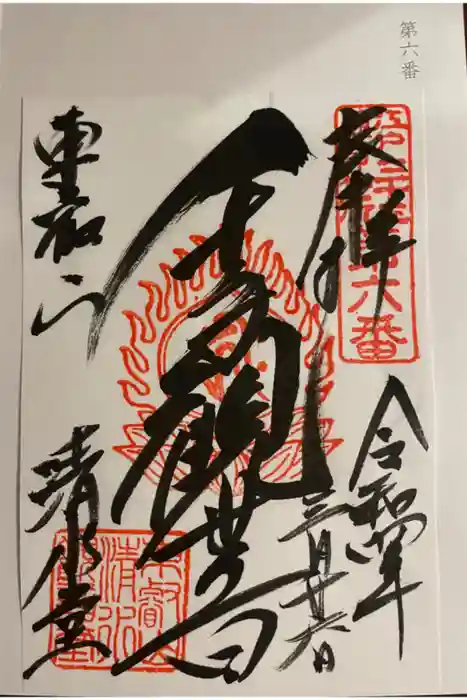 第六番
奉拝
令和四年
三月廿六日
千手観世音
東叡山
清水堂
第六番